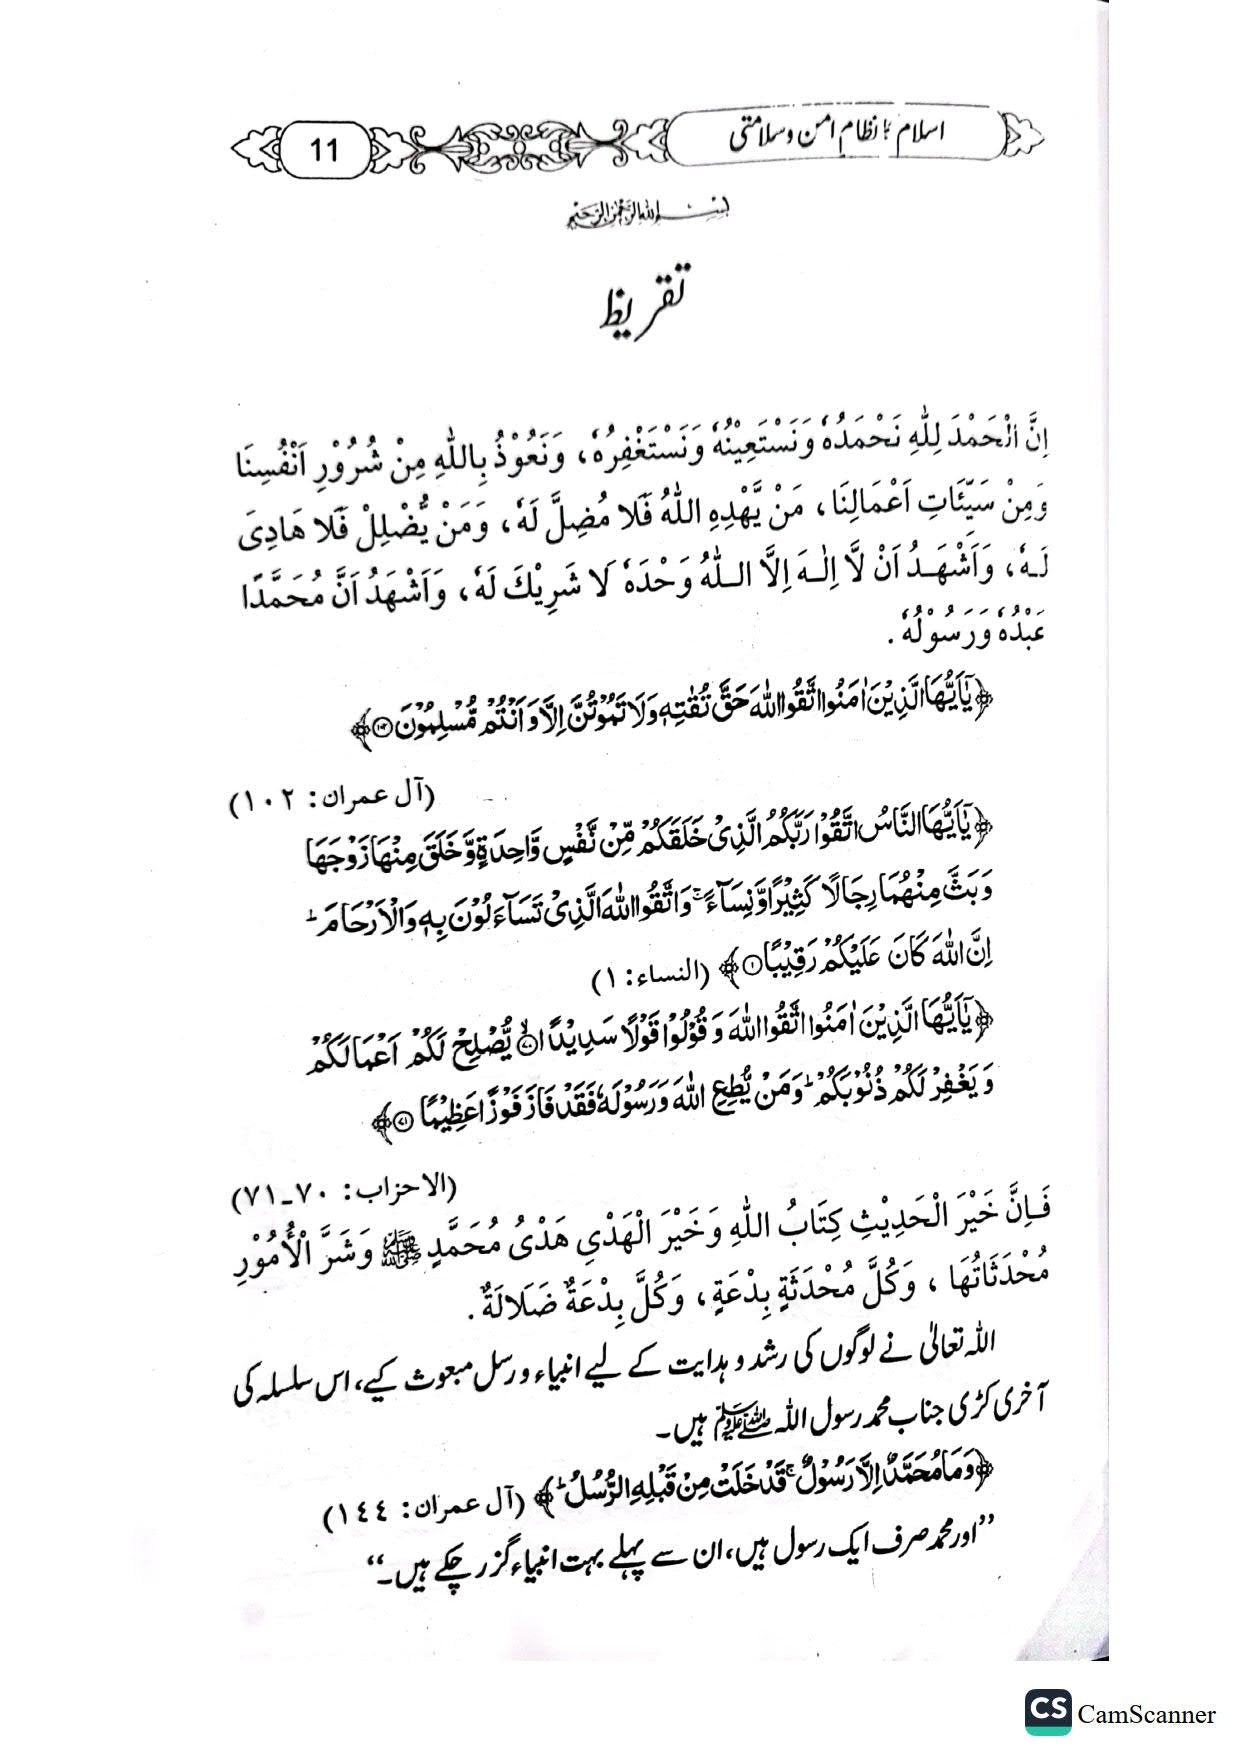 اسلام کا نظام امن و سلامتی
11
بسم الله الرحمن الرحيم
تقریظ
اِنَّ الْحَمْدَ لِلّٰهِ نَحْمَدُهٗ وَنَسْتَعِيْنُهٗ وَنَسْتَغْفِرُهٗ، وَنَعُوْذُ بِاللّٰهِ مِنْ شُرُوْرِ اَنْفُسِنَا
وَمِنْ سَيِّئَاتِ اَعْمَالِنَا، مَنْ يَّهْدِهِ اللّٰهُ فَلَا مُضِلَّ لَهٗ، وَمَنْ يُّضْلِلْ فَلَا هَادِىَ
لَهٗ، وَاَشْهَدُ اَنْ لَّا اِلٰهَ اِلَّا اللّٰهُ وَحْدَهٗ لَا شَرِيْكَ لَهٗ، وَاَشْهَدُ اَنَّ مُحَمَّدًا
عَبْدُهٗ وَرَسُوْلُهٗ.
﴿يٰۤاَيُّهَا الَّذِيْنَ اٰمَنُوا اتَّقُوا اللّٰهَ حَقَّ تُقٰتِهٖ وَلَا تَمُوْتُنَّ اِلَّا وَاَنْتُمْ مُّسْلِمُوْنَ ۝۱۰۲﴾
(آل عمران: ١٠٢)
﴿يٰۤاَيُّهَا النَّاسُ اتَّقُوْا رَبَّكُمُ الَّذِىْ خَلَقَكُمْ مِّنْ نَّفْسٍ وَّاحِدَةٍ وَّخَلَقَ مِنْهَا زَوْجَهَا
وَبَثَّ مِنْهُمَا رِجَالًا كَثِيْرًا وَّنِسَآءً ۚ وَاتَّقُوا اللّٰهَ الَّذِىْ تَسَآءَلُوْنَ بِهٖ وَالْاَرْحَامَ ؕ
اِنَّ اللّٰهَ كَانَ عَلَيْكُمْ رَقِيْبًا ۝۱﴾ (النساء: ١)
﴿يٰۤاَيُّهَا الَّذِيْنَ اٰمَنُوا اتَّقُوا اللّٰهَ وَقُوْلُوْا قَوْلًا سَدِيْدًا ۝۷۰ۙ يُّصْلِحْ لَكُمْ اَعْمَالَكُمْ
وَيَغْفِرْ لَكُمْ ذُنُوْبَكُمْ ؕ وَمَنْ يُّطِعِ اللّٰهَ وَرَسُوْلَهٗ فَقَدْ فَازَ فَوْزًا عَظِيْمًا ۝۷۱﴾
(الاحزاب: ٧٠۔٧١)
فَاِنَّ خَيْرَ الْحَدِيْثِ كِتَابُ اللّٰهِ وَخَيْرَ الْهَدْيِ هَدْىُ مُحَمَّدٍ ﷺ وَشَرَّ الْأُمُوْرِ
مُحْدَثَاتُهَا، وَكُلَّ مُحْدَثَةٍ بِدْعَةٍ، وَكُلَّ بِدْعَةٌ ضَلَالَةٌ.
اللہ تعالیٰ نے لوگوں کی رشد و ہدایت کے لیے انبیاء و رسل مبعوث کیے، اس سلسلہ کی
آخری کڑی جناب محمد رسول اللہ ﷺ ہیں۔
﴿وَمَا مُحَمَّدٌ اِلَّا رَسُوْلٌ ۚ قَدْ خَلَتْ مِنْ قَبْلِهِ الرُّسُلُ ؕ﴾ (آل عمران: ١٤٤)
”اور محمد صرف ایک رسول ہیں، ان سے پہلے بہت انبیاء گزر چکے ہیں۔“
CS CamScanner